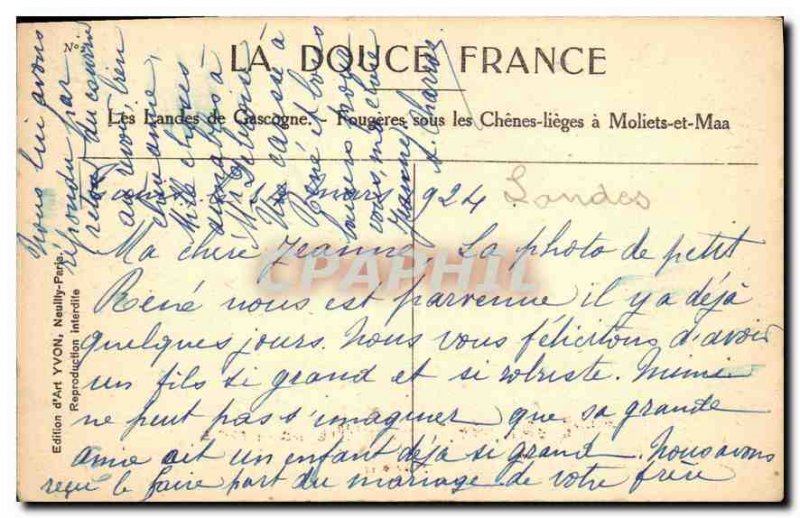 N°
LA DOUCE FRANCE
Les Landes de Gascogne. - Fougères sous les Chênes-lièges à Moliets-et-Maa
mars 1924
Landes
Ma chère Jeanne, La photo de petit
René nous est parvenue il y a déjà
quelques jours. Nous vous félicitons d'avoir
un fils si grand et si robuste. Mimi
ne peut pas s'imaginer que sa grande
amie ait un enfant déjà si grand. Nous avons
reçu le faire part du mariage de votre frère
Nous lui avons
répondu par
retour du courrier
au revoir, bien
chère amie,
mille choses
aimables à
Mr
Une caresse à
René et bons
baisers pour
vous, ma chère
Jeanne
CPAPHIL
Edition d'Art YVON, Neuilly-Paris.
Reproduction interdite